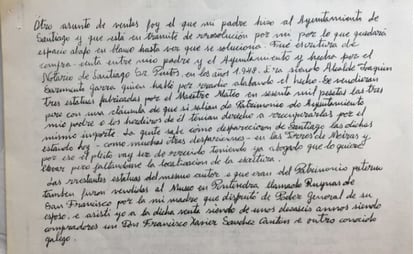 Otro asunto de ventas foy el que mi padre hizo al Ayuntamiento de
Santiago y que está en trámite de resolución por mi por lo que quedará
espacio alafo en blanco hasta ver que se soluciona. Fué escritura de
compra-venta entre mio padre y el Ayuntamiento y hecho por el
Notario de Santiago Sr. Pintos en los años 1.948. Era siendo Alcalde Joaquin
Sarmiento Garra quien habló por radio alabando el hecho. Se vendieran
tres estatuas fabricadas por el Maestro Mateo en sesenta mil pesetas las tres
pero con una cláusula de que si salian de Patrimonio de Ayuntamiento
mio padre o los herdeiros de él tenian derecho a recuperarlas por el
mismo importe. La gente sabe como desparecieron de Santiago las dichas
estando hoy - como muchas otras desparecieron - en las Torres de Meiras y
por eso el pleito vay hez de recorrido teniendo ya abogado que lo quiere
llevar pero faltándome la localización de la escritura.
Las restantes estatuas del mesmo autor e que eran del Patrimonio paterno
tamben furon vendidas al Museo en Pontevedra llamado Ruynas de
San Francisco por la mi madre que disfrutó de Poder General de su
esposo, e asistí yo a la dicha venta siendo de unos dieciseis annos siendo
compradores un Don Francisco Xavier Sanchez Cantón e outro conocido
galego.